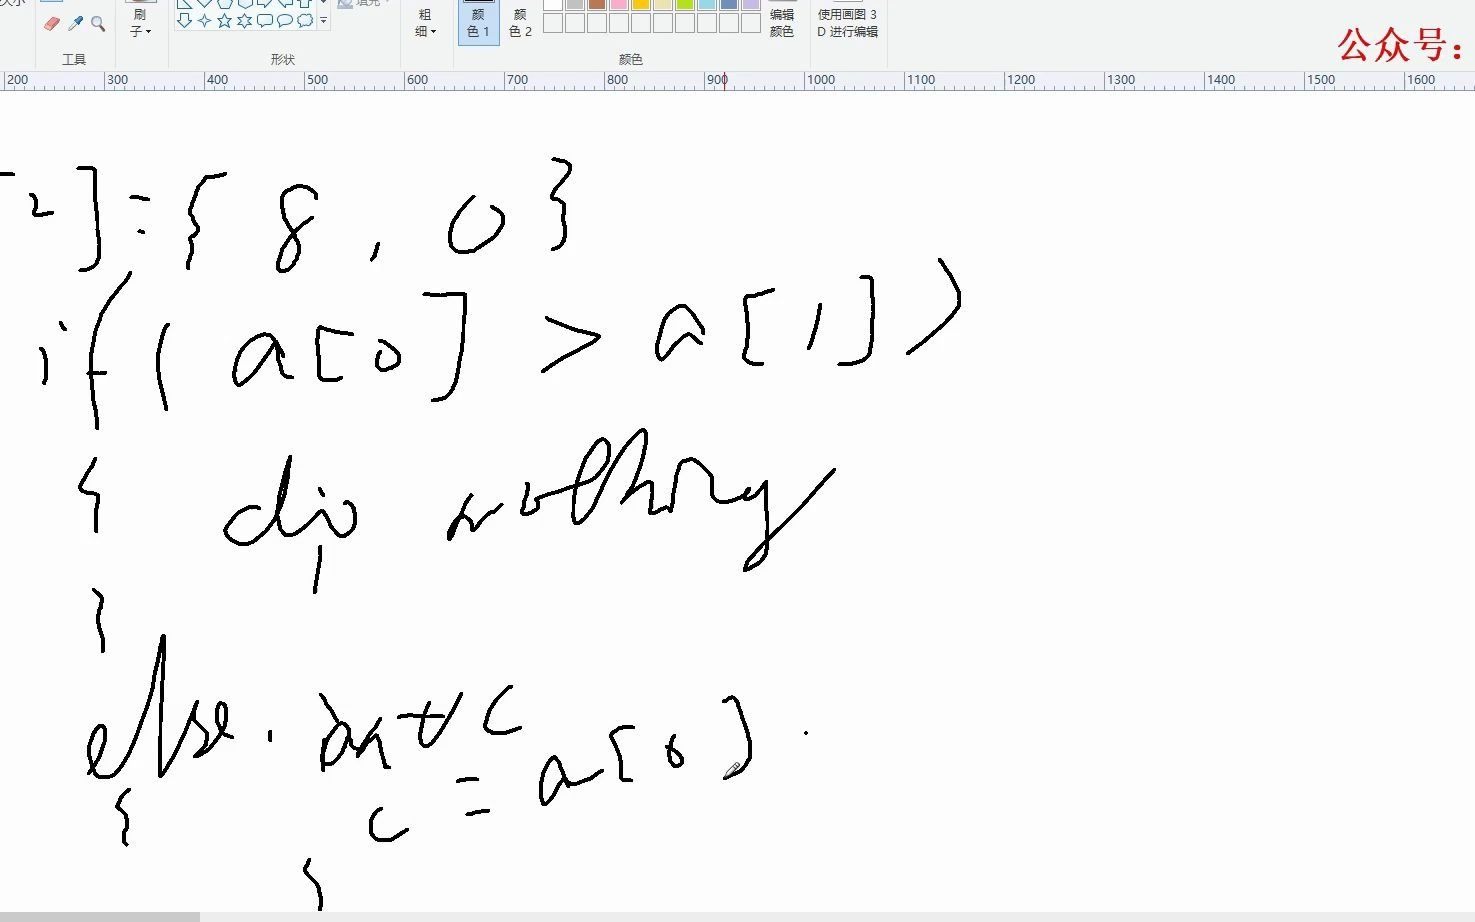 大小
刷
子
工具
形状
填充
粗
细
颜
色 1
颜
色 2
颜色
编辑
颜色
使用画图 3
D 进行编辑
公众号：
200 300 400 500 600 700 800 900 1000 1100 1200 1300 1400 1500 1600
2]={8,0}
if(a[0]>a[1])
{ do nothing
}
else. int c
{ c = a[0]
}